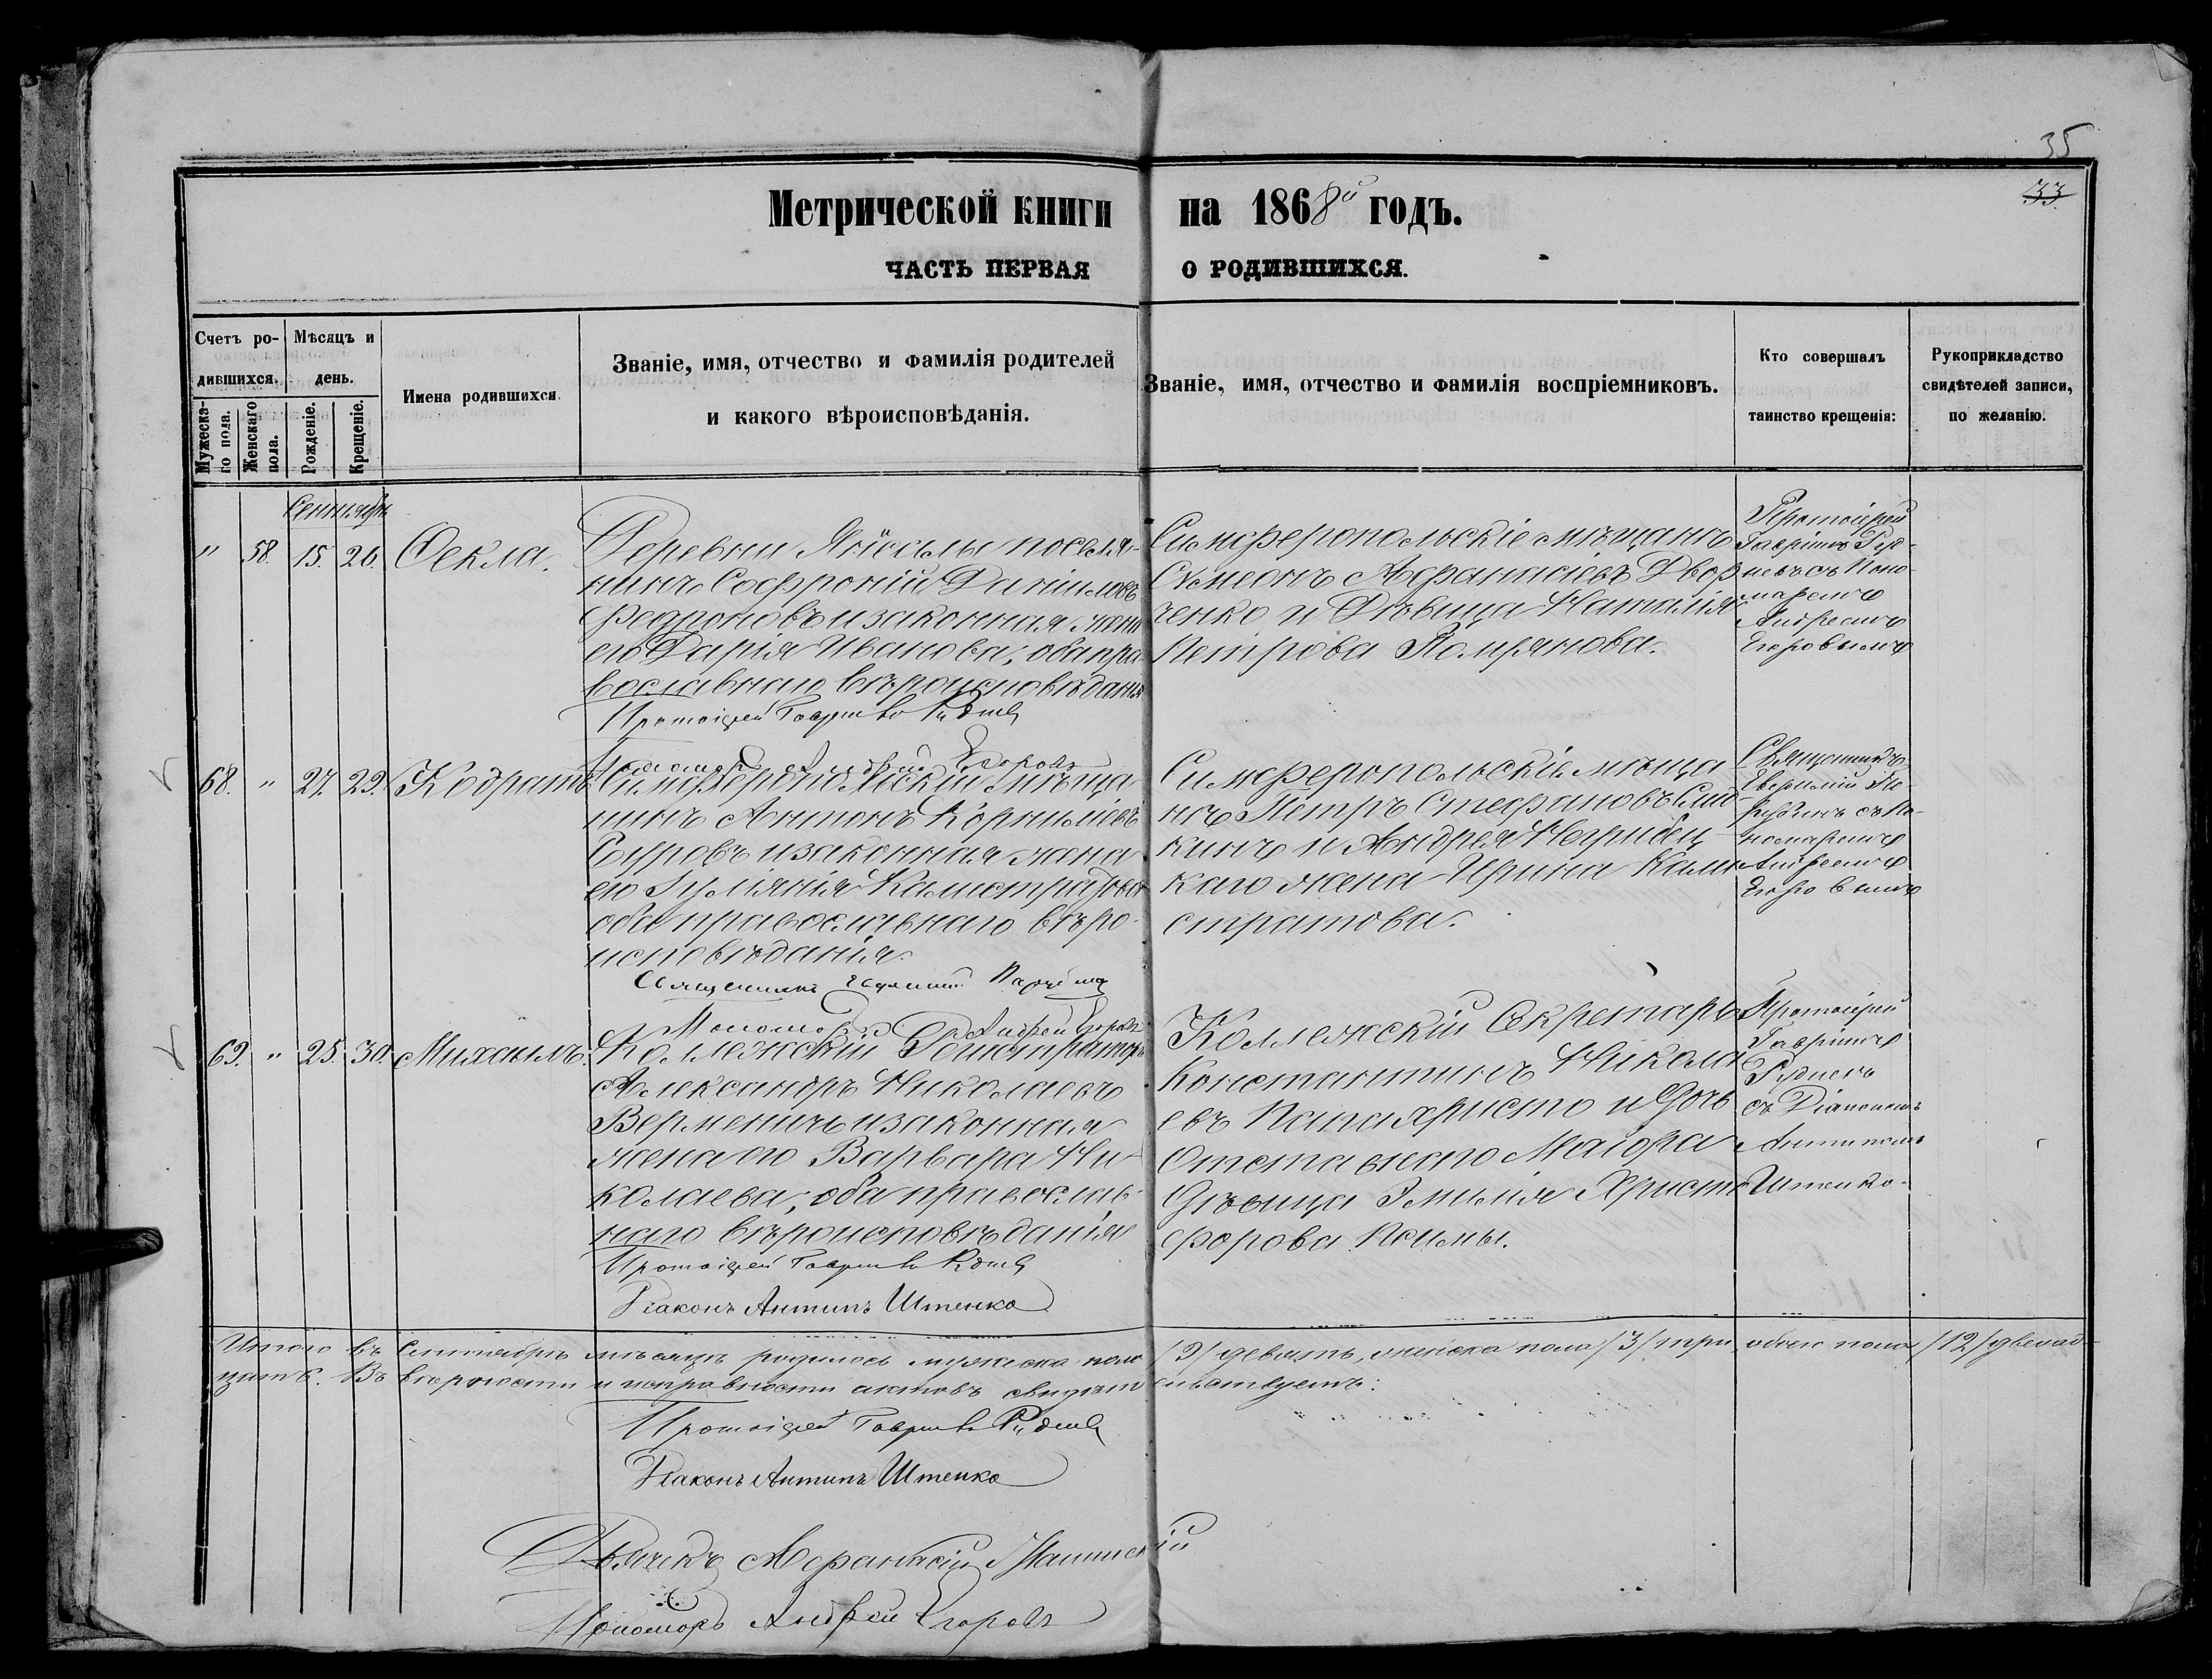 35
33.
Метрической книги на 1868й годъ.
ЧАСТЬ ПЕРВАЯ О РОДИВШИХСЯ.
Счетъ ро-
дившихся.
Мѣсяцъ и
день.
Мужеска-
го пола.
Женскаго
пола.
Рожденіе.
Крещеніе.
Имена родившихся.
Званіе, имя, отчество и фамилія родителей
и какого вѣроисповѣданія.
Званіе, имя, отчество и фамилія воспріемниковъ.
Кто совершалъ
таинство крещенія:
Рукоприкладство
свидѣтелей записи,
по желанію.
Сентябрь
" 58. 15. 26. Ѳекла.
Деревни поселя-
нинъ Софроній Даніиловъ
и законная жена
его Дарія Иванова, оба пра-
вославнаго вѣроисповѣданія
Протоіерей Гавріилъ Руднев
Пономарь Андрей Егоровъ
Симферопольскіе мѣщанъ
Сѵмеонъ Афанасіевъ Двор
ченко и Дѣвица Наталія
Петрова
Протоіерей
Гавріилъ Руд-
невъ съ Поно-
маремъ
Андреемъ
Егоровымъ
68. " 27. 29. Кодратъ
Симферопольскій мѣща-
нинъ Антонъ Корниліевъ
и законная жена
его Калистратова
оба православнаго вѣро-
исповѣданія.
Священникъ
Пономарь Андрей Егоровъ
Симферопольскій мѣща
нъ Петръ Стефановъ
кинъ и Андрея
каго жена Ирина Кали
стратова.
Священникъ
съ По-
номаремъ
Андреемъ
Егоровымъ
69. " 25. 30. Михаилъ.
Коллежскій Регистраторъ
Александръ Николаевъ
Верменичъ и законная
жена его Варвара Ни-
колаева, оба православ-
наго вѣроисповѣданія
Протоіерей Гавріилъ Руднев
Діаконъ Антипъ Штенко
Коллежскій Секретарь
Константинъ Никола
евъ Папахристо и Дочь
Отставнаго Маіора
Дѣвица Эмилія Христо
форова
Протоіерей
Гавріилъ
Рудневъ
съ Діакономъ
Антипомъ
Штенко.
Итого въ Сентябрѣ мѣсяцѣ родилось мужеска пола /9/ девять, женска пола /3/ три, обоего пола /12/ двенад-
цать. Въ вѣрности и исправности актовъ свидѣтельствуемъ:
Протоіерей Гавріилъ Руднев
Діаконъ Антипъ Штенко
Дьячекъ Афанасій
Пономарь Андрей Егоровъ